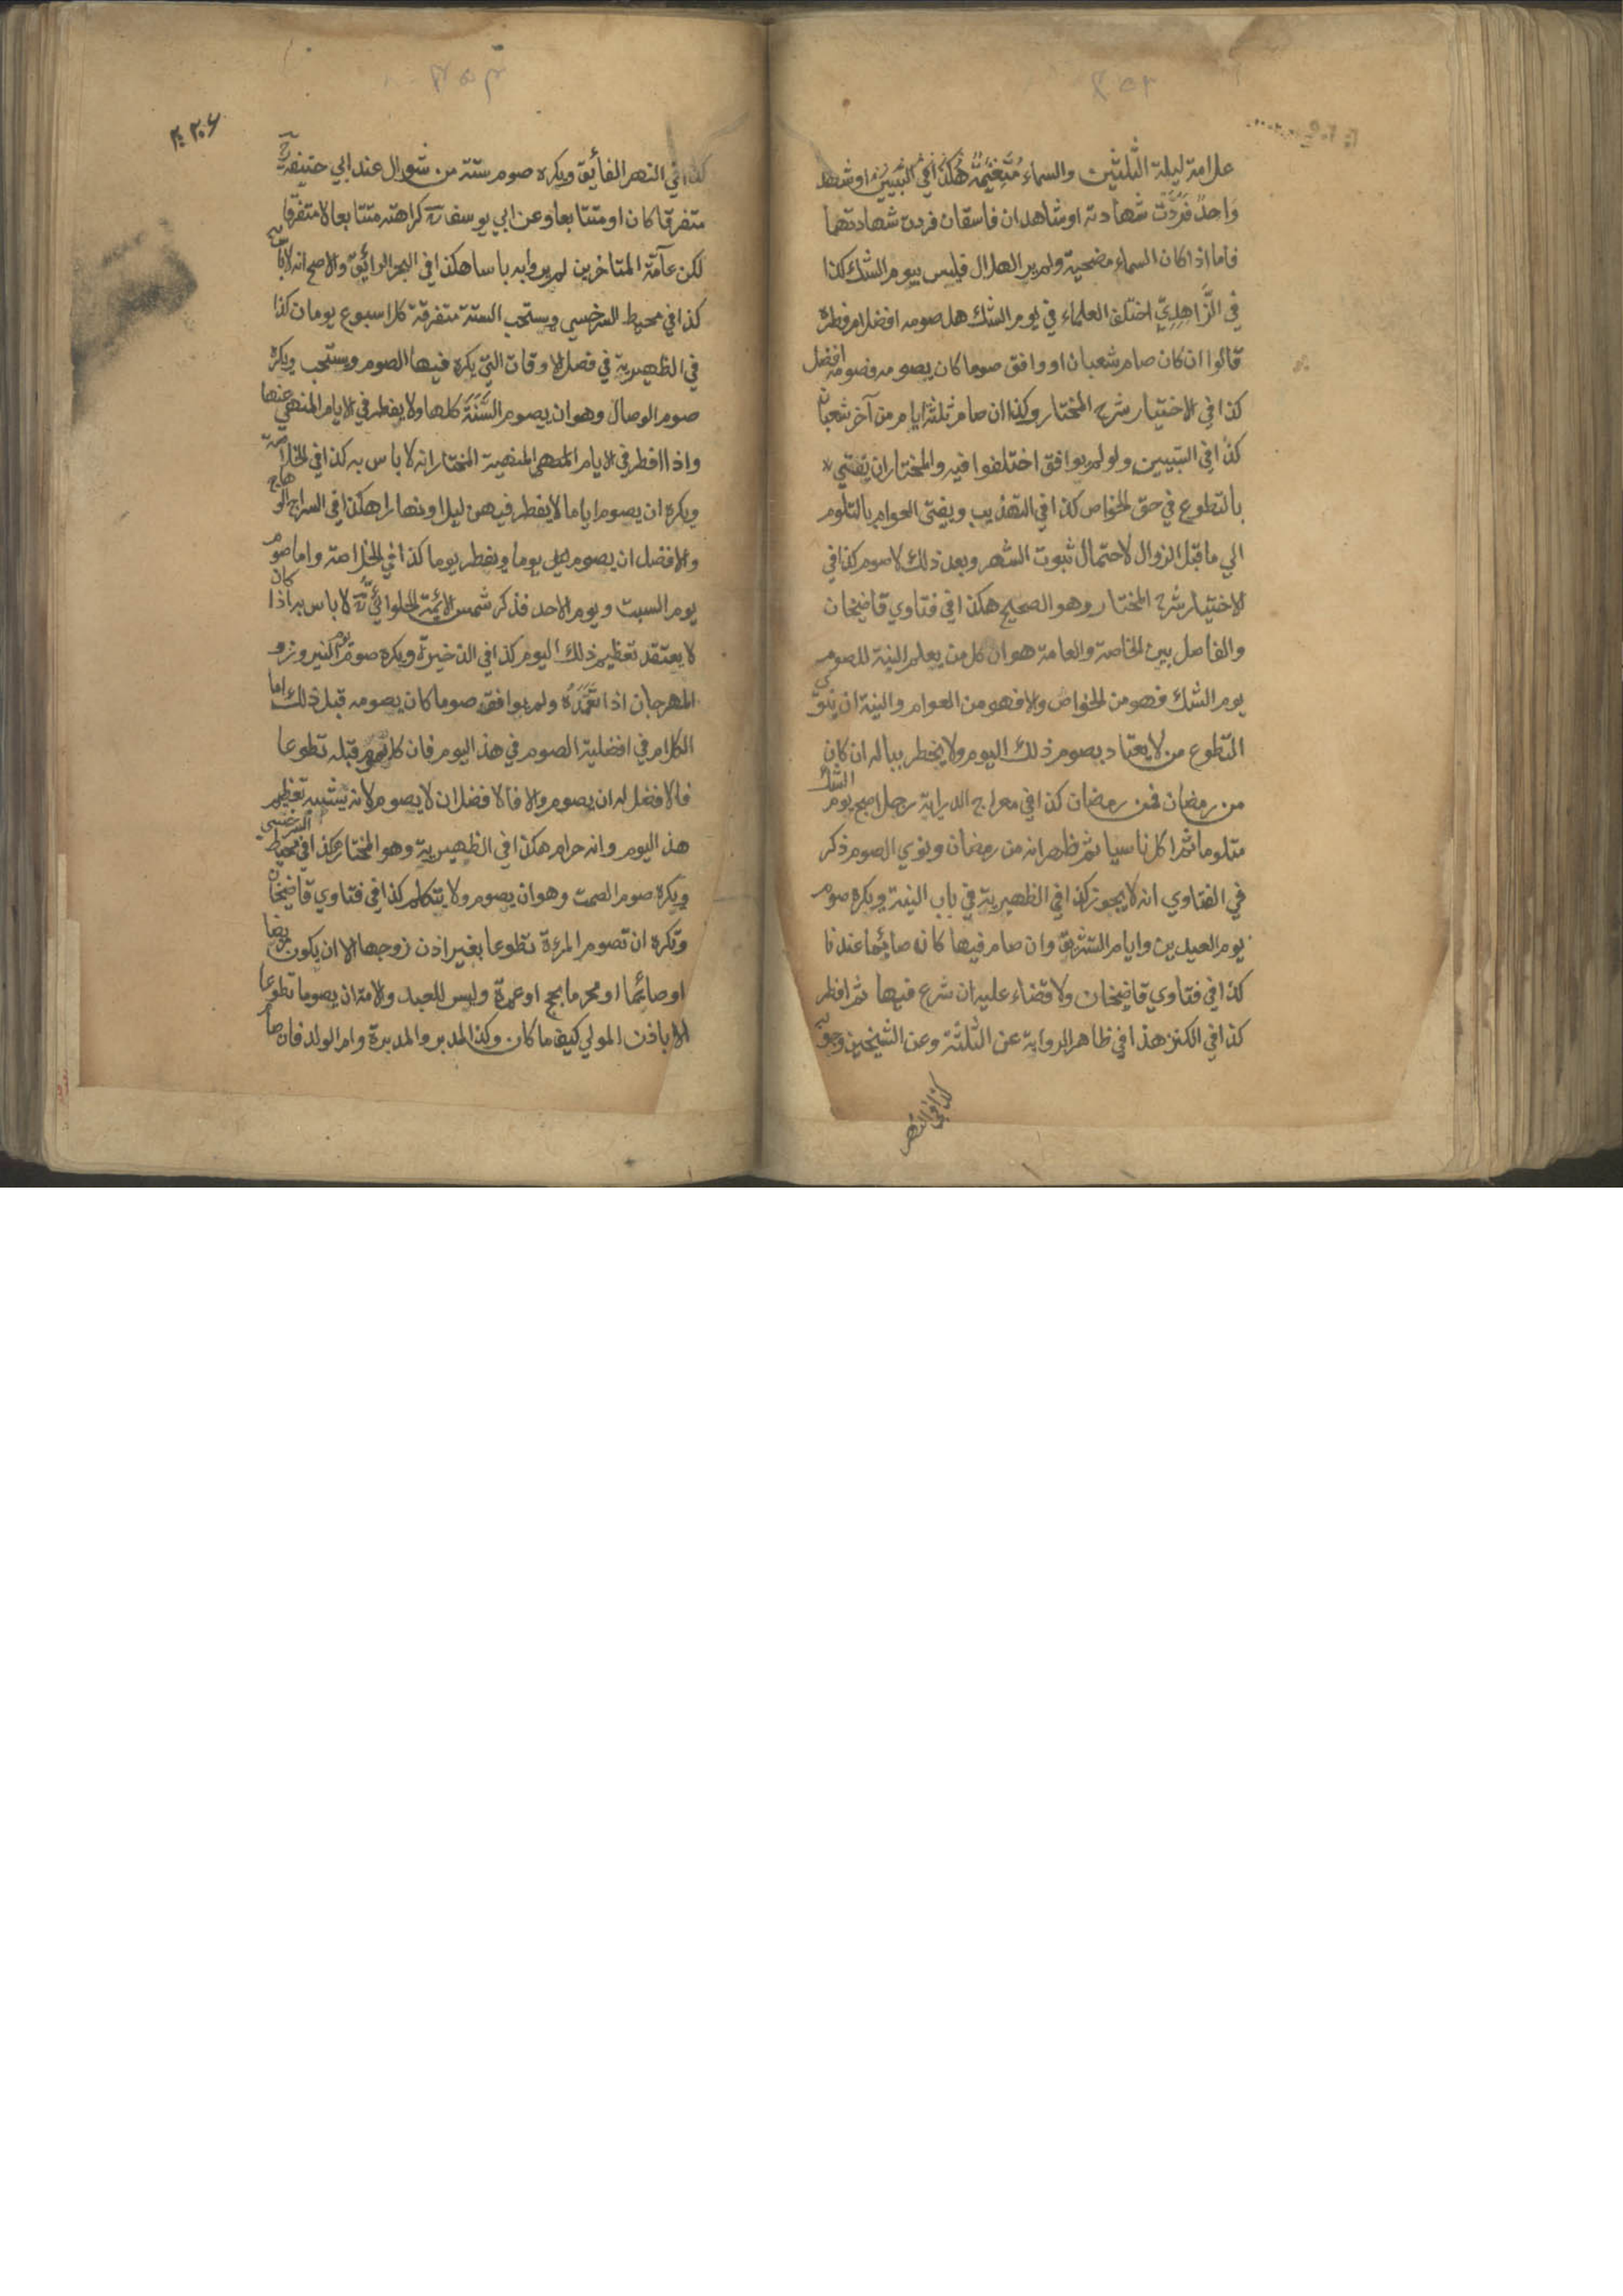 علامة ليلة الثلثين والسماء متغيمة هكذا في التبيين او شهد
واحد فردت شهادته او شاهدان فاسقان فردت شهادتهما
فاما اذا كان السماء مضحية ولم ير الهلال فليس بيوم الشك كذا
في الزاهدي اختلف العلماء في يوم الشك هل صومه افضل ام فطره
قالوا ان كان صام شعبان او وافق صوما كان يصومه فصومه افضل
كذا في الاختيار شرح المختار وكذا ان صام ثلثة ايام من آخر شعبان
كذا في التبيين ولو لم يوافق اختلفوا فيه والمختار ان يفتي
بالتطوع في حق الخواص كذا في التهذيب ويفتى العوام بالتلوم
الي ما قبل الزوال لاحتمال ثبوت الشهر وبعد ذلك لا صوم كذا في
الاختيار شرح المختار وهو الصحيح هكذا في فتاوي قاضيخان
والفاصل بين الخاصة والعامة هو ان كل من يعلم النية للصوم
يوم الشك فهو من الخواص والا فهو من العوام والنية ان ينوي
التطوع من لا يعتاد بصوم ذلك اليوم ولا يخطر بباله ان كان
من رمضان فمن رمضان كذا في معراج الدراية رجل اصبح يوم الشك
متلوما ثم اكل ناسيا ثم ظهر انه من رمضان ونوي الصوم ذكر
في الفتاوي انه لا يجوز كذا في الظهيرية في باب النية ويكره صوم
يوم العيدين وايام التشريق وان صام فيها كان صائما عندنا
كذا في فتاوي قاضيخان ولا قضاء عليه ان شرع فيها ثم افطر
كذا في الكنز هذا في ظاهر الرواية عن الثلثة وعن الشيخين وجوبه
كذا في النهر
٢٠٦
كذا في النهر الفائق ويكره صوم ستة من شوال عند ابي حنيفة رح
متفرقا كان او متتابعا وعن ابي يوسف رح كراهته متتابعا لا متفرقا
لكن عامة المتاخرين لم يروا به باسا هكذا في البحر الرائق والاصح انه لا باس به
كذا في محيط السرخسي ويستحب الستة متفرقة كل اسبوع يومان كذا
في الظهيرية في فصل الاوقات التي يكره فيها الصوم ويستحب ويكره
صوم الوصال وهو ان يصوم السنة كلها ولا يفطر في الايام المنهي عنها
واذا افطر في الايام المنهي المنهية المختار انه لا باس به كذا في الخلاصة
ويكره ان يصوم اياما لا يفطر فيهن ليلا ونهارا هكذا في السراج الوهاج
والافضل ان يصوم يوما ويفطر يوما كذا في الخلاصة واما صوم
يوم السبت ويوم الاحد فذكر شمس الائمة الحلوائي رح لا باس به اذا كان
لا يعتقد تعظيم ذلك اليوم كذا في الذخيرة ويكره صوم يوم النيروز و
المهرجان اذا تعمده ولم يوافق صوما كان يصومه قبل ذلك اما
الكلام في افضلية الصوم في هذ اليوم فان كان يصوم قبله تطوعا
فالافضل له ان يصوم والا فالافضل ان لا يصوم لانه يشبه تعظيم
هذ اليوم وانه حرام هكذا في الظهيرية وهو المختار هكذا في محيط السرخسي
ويكره صوم الصمت وهو ان يصوم ولا يتكلم كذا في فتاوي قاضيخان
وتكره ان تصوم المرءة تطوعا بغير اذن زوجها الا ان يكون مريضا
او صائما او محرما بحج او عمرة وليس للعبد والامة ان يصوما تطوعا
الا باذن المولي كيف ما كان وكذا المدبر والمدبرة وام الولد فان صام